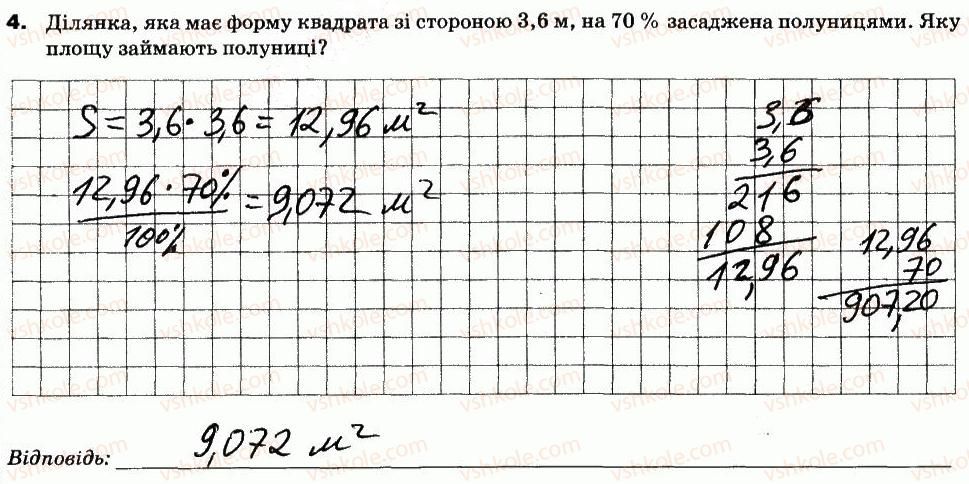 4. Ділянка, яка має форму квадрата зі стороною 3,6 м, на 70 % засаджена полуницями. Яку
площу займають полуниці?
S = 3,6 · 3,6 = 12,96 м²
12,96 · 70%
100%
= 9,072 м²
3,6
3,6
216
108
12,96
12,96
70
907,20
Відповідь: 9,072 м²